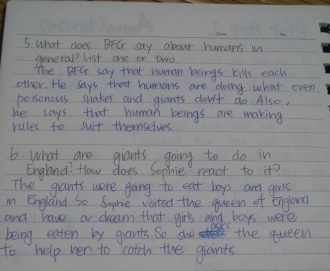 5. What does BFG say about humans in
general? List one or two.
The BFG say that human beings kills each
other. He says that humans are doing what even
poisonous snakes and giants don't do. Also,
he says that human beings are making
rules to suit themselves.
6. What are giants going to do in
England? How does Sophie react to it?
The giants were going to eat boys and girls
in England. So Sophie visited the queen of England
and have a dream that girls and boys were
being eaten by giants. So she asks the queen
to help her to catch the giants